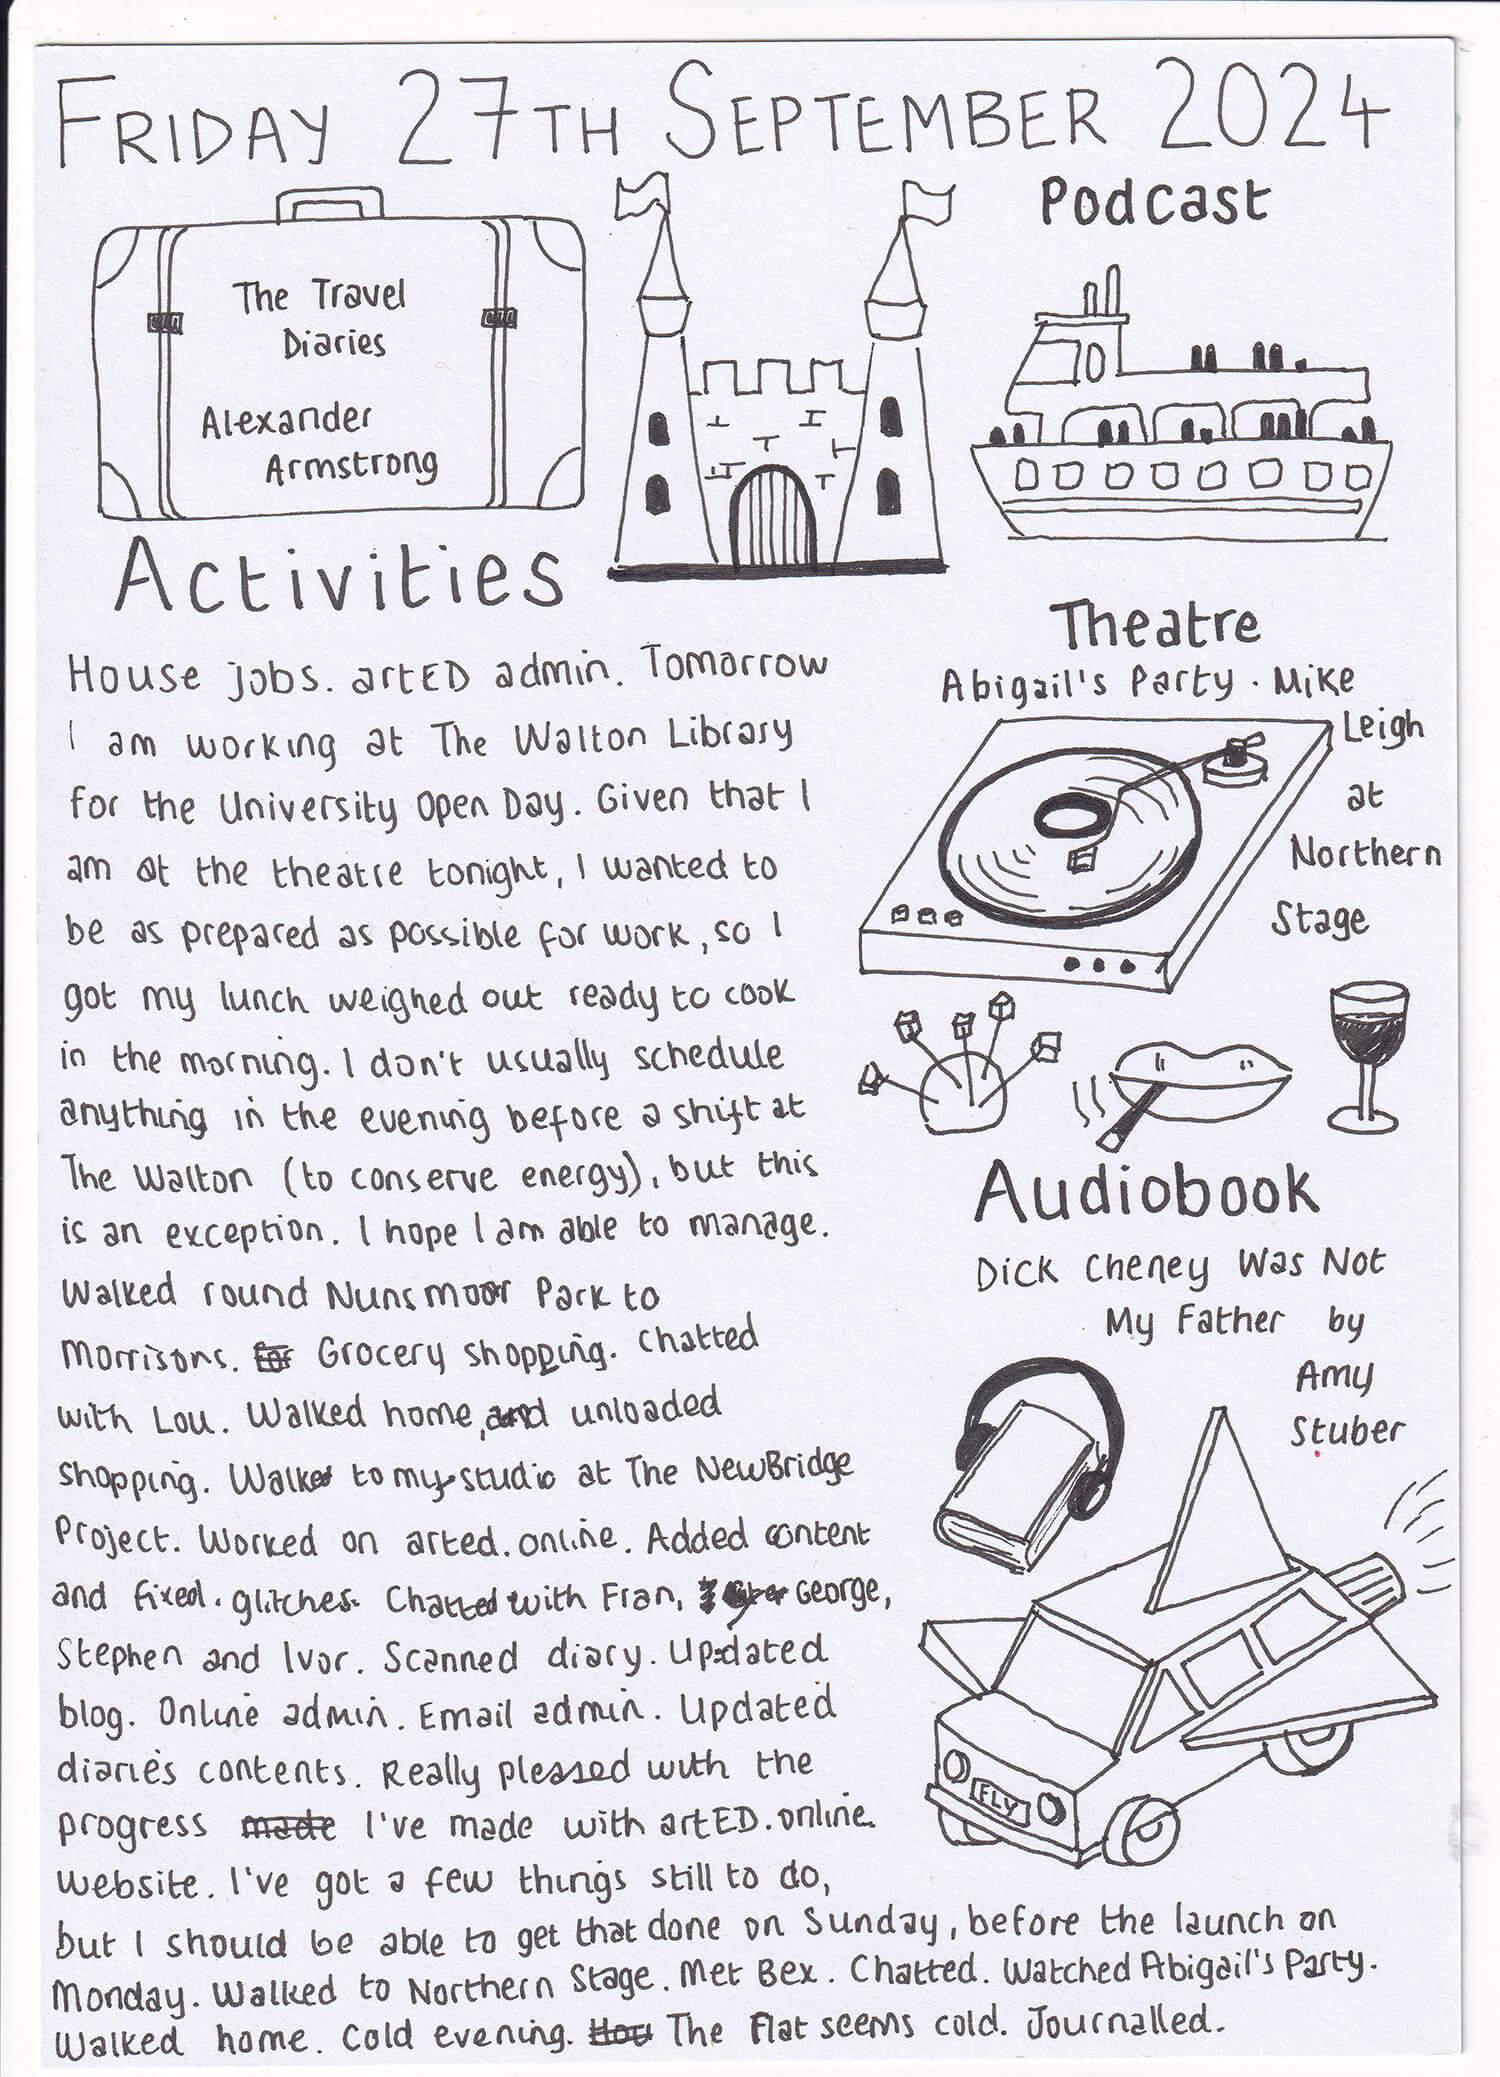 FRIDAY 27TH SEPTEMBER 2024
The Travel
Diaries
Alexander
Armstrong
Podcast
Activities
House jobs. artED admin. Tomorrow
I am working at The Walton Library
for the University Open Day. Given that I
am at the theatre tonight, I wanted to
be as prepared as possible for work, so I
got my lunch weighed out ready to cook
in the morning. I don't usually schedule
anything in the evening before a shift at
The Walton (to conserve energy), but this
is an exception. I hope I am able to manage.
Walked round Nunsmoor Park to
Morrisons. for Grocery shopping. Chatted
with Lou. Walked home, and unloaded
shopping. Walked to my studio at The NewBridge
Project. Worked on arted.online. Added content
and fixed. glitches. Chatted with Fran, George,
Stephen and Ivor. Scanned diary. Updated
blog. Online admin. Email admin. Updated
diaries contents. Really pleased with the
progress made I've made with artED.online.
website. I've got a few things still to do,
but I should be able to get that done on Sunday, before the launch on
Monday. Walked to Northern Stage. Met Bex. Chatted. Watched Abigail's Party.
Walked home. Cold evening. The Flat seems cold. Journalled.
Theatre
Abigail's Party. Mike
Leigh
at
Northern
Stage
Audiobook
Dick Cheney Was Not
My Father by
Amy
Stuber
FLY